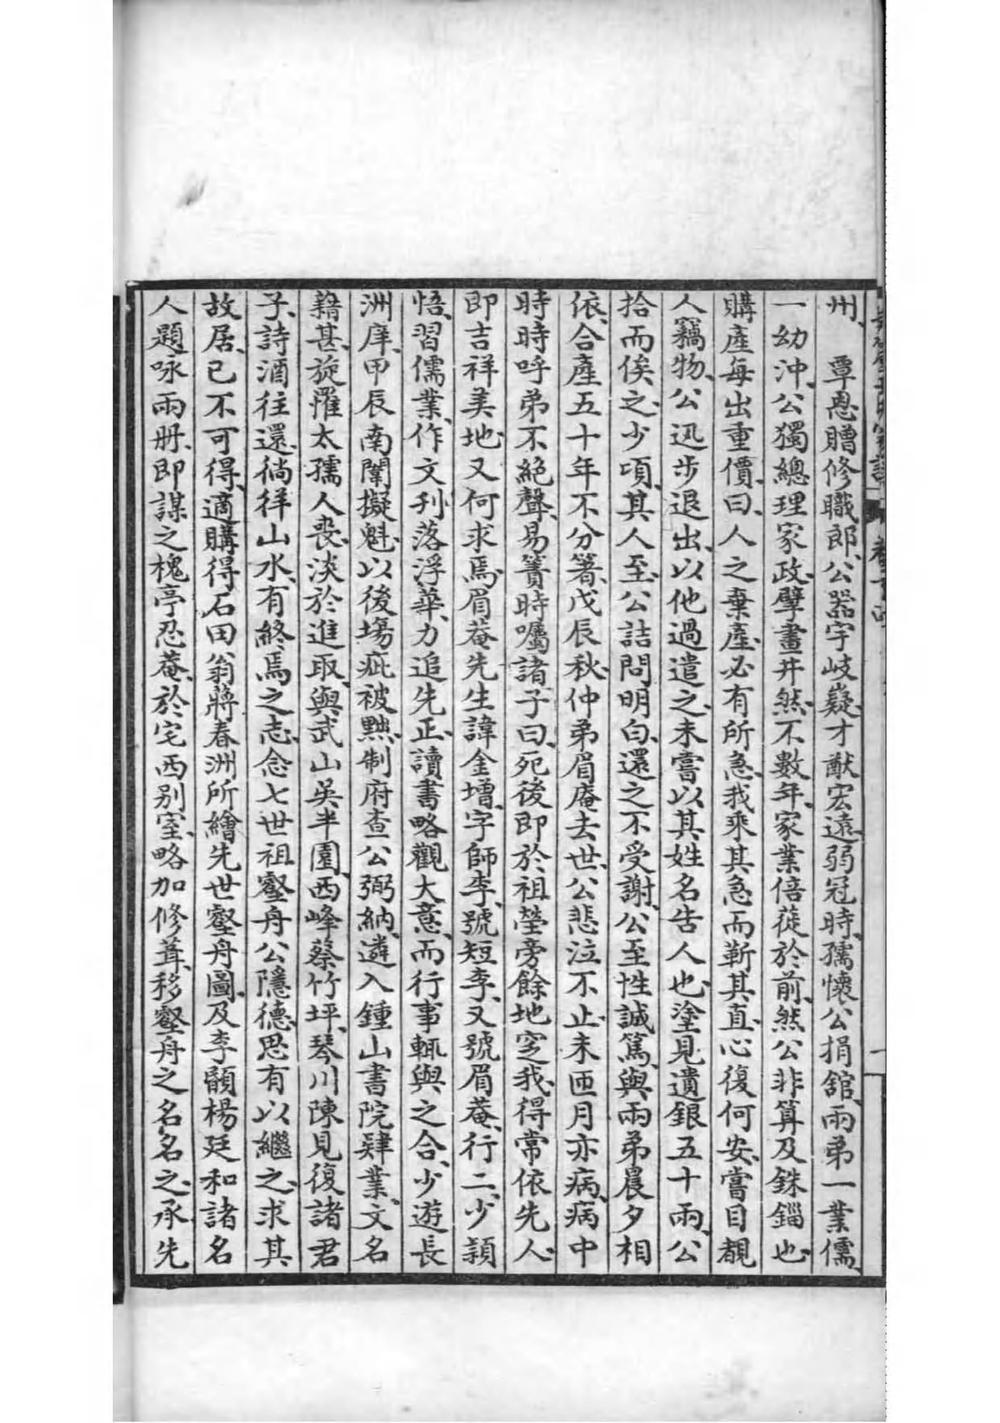 州、　覃恩贈修職郎、公器宇岐嶷才猷宏遠弱冠時、孺懷公捐舘、兩弟一業儒、
一幼沖、公獨總理家政、擘畫井然、不數年、家業倍蓰於前、然公非算及銖錙也、
購產每出重價、曰、人之棄產、必有所急、我乘其急而靳其直、心復何安、嘗目覩
人竊物、公迅步退出、以他過遣之、未嘗以其姓名告人也、塗見遺銀五十兩、公
拾而俟之、少頃、其人至、公詰問明白、還之不受謝、公至性誠篤、與兩弟晨夕相
依、合產五十年不分箸、戊辰秋、仲弟眉庵去世、公悲泣不止、未匝月亦病、病中
時時呼弟不絕聲、易簀時囑諸子曰、死後即於祖塋旁餘地窆我、得常依先人、
即吉祥美地、又何求焉、眉菴先生諱金增、字師李、號短李、又號眉菴、行二、少穎
悟、習儒業、作文刋落浮華、力追先正、讀書略觀大意、而行事輒與之合、少遊長
洲庠、甲辰南闈擬魁、以後塲疵被黜、制府查公弼納、遴入鍾山書院肄業、文名
藉甚、旋罹太孺人喪、淡於進取、與武山吳半園、西峰蔡竹坪、琴川陳見復諸君
子、詩酒往還、徜徉山水、有終焉之志、念七世祖壑舟公隱德、思有以繼之、求其
故居、已不可得、適購得石田翁蔣春洲所繪先世壑舟圖、及李願楊廷和諸名
人題咏兩册、即謀之槐亭忍菴、於宅西别室、略加修葺、移壑舟之名名之、承先